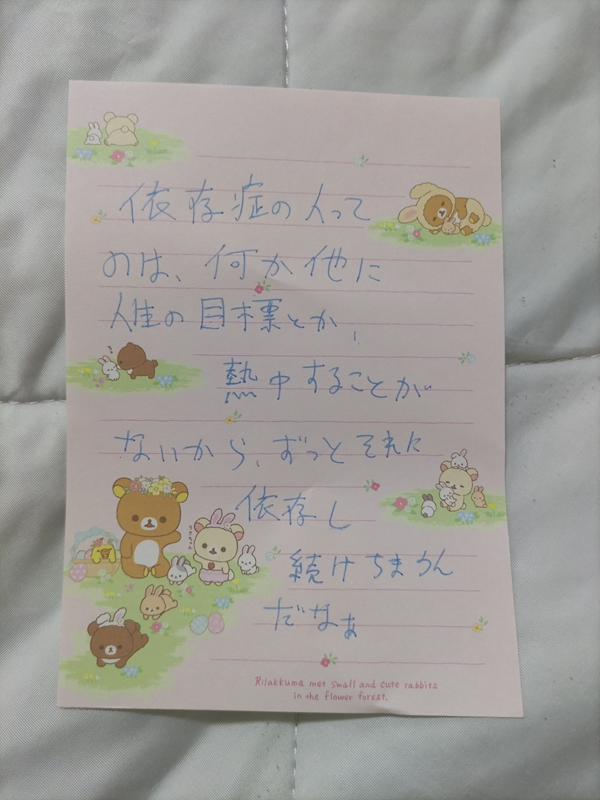 依存症の人って
のは、何か他に
人生の目標とか、
熱中することが
ないから、ずっとそれに
依存し
続けちまうん
だなぁ
Rilakkuma met small and cute rabbits
in the flower forest.